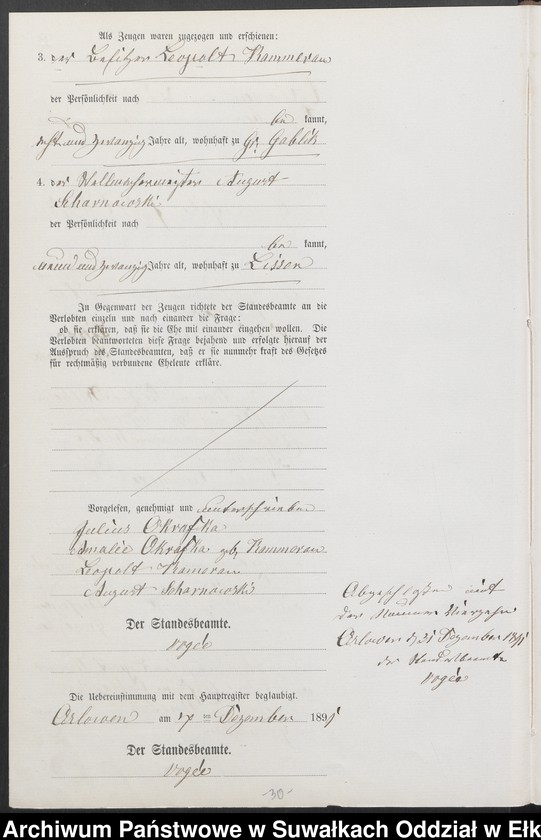 Als Zeugen waren zugezogen und erschienen:
3. der Besitzer Leopolt Kammeran
der Persönlichkeit nach
be kannt,
acht und zwanzig Jahre alt, wohnhaft zu Gr. Gablick
4. der Stellmachermeister August
Scharnowski
der Persönlichkeit nach
be kannt,
neun und zwanzig Jahre alt, wohnhaft zu Lissen
In Gegenwart der Zeugen richtete der Standesbeamte an die
Verlobten einzeln und nach einander die Frage:
ob sie erklären, daß sie die Ehe mit einander eingehen wollen. Die
Verlobten beantworteten diese Frage bejahend und erfolgte hierauf der
Ausspruch des Standesbeamten, daß er sie nunmehr kraft des Gesetzes
für rechtmäßig verbundene Eheleute erkläre.
Vorgelesen, genehmigt und unterschrieben
Julius Okrafka
Amalie Okrafka geb. Kammeran
Leopolt Kameran
August Scharnowski
Der Standesbeamte.
Vogée
Abgeschlossen mit
der Nummer Vierzehn
Orlowen d. 31 Dezember 1891
der Standesbeamte
Vogée
Die Uebereinstimmung mit dem Hauptregister beglaubigt.
Orlowen am 17 ten Dezember 1891
Der Standesbeamte.
Vogée
30
Archiwum Państwowe w Suwałkach Oddział w Ełk